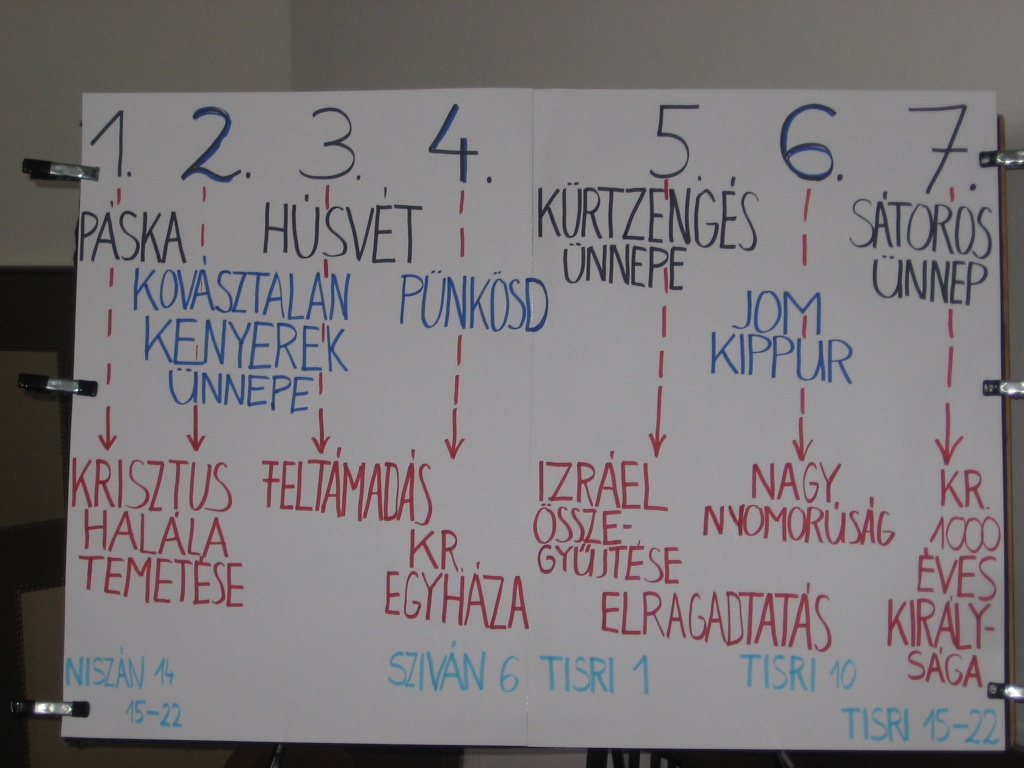 1. 2. 3. 4. 5. 6. 7.
PÁSKA
KOVÁSZTALAN
KENYEREK
ÜNNEPE
HÚSVÉT
PÜNKÖSD
KÜRTZENGÉS
ÜNNEPE
JOM
KIPPUR
SÁTOROS
ÜNNEP
KRISZTUS
HALÁLA
TEMETÉSE
FELTÁMADÁS
KR.
EGYHÁZA
IZRÁEL
ÖSSZE-
GYŰJTÉSE
NAGY
NYOMORÚSÁG
ELRAGADTATÁS
KR.
1000
ÉVES
KIRÁLY-
SÁGA
NISZÁN 14
15-22
SZIVÁN 6
TISRI 1
TISRI 10
TISRI 15-22